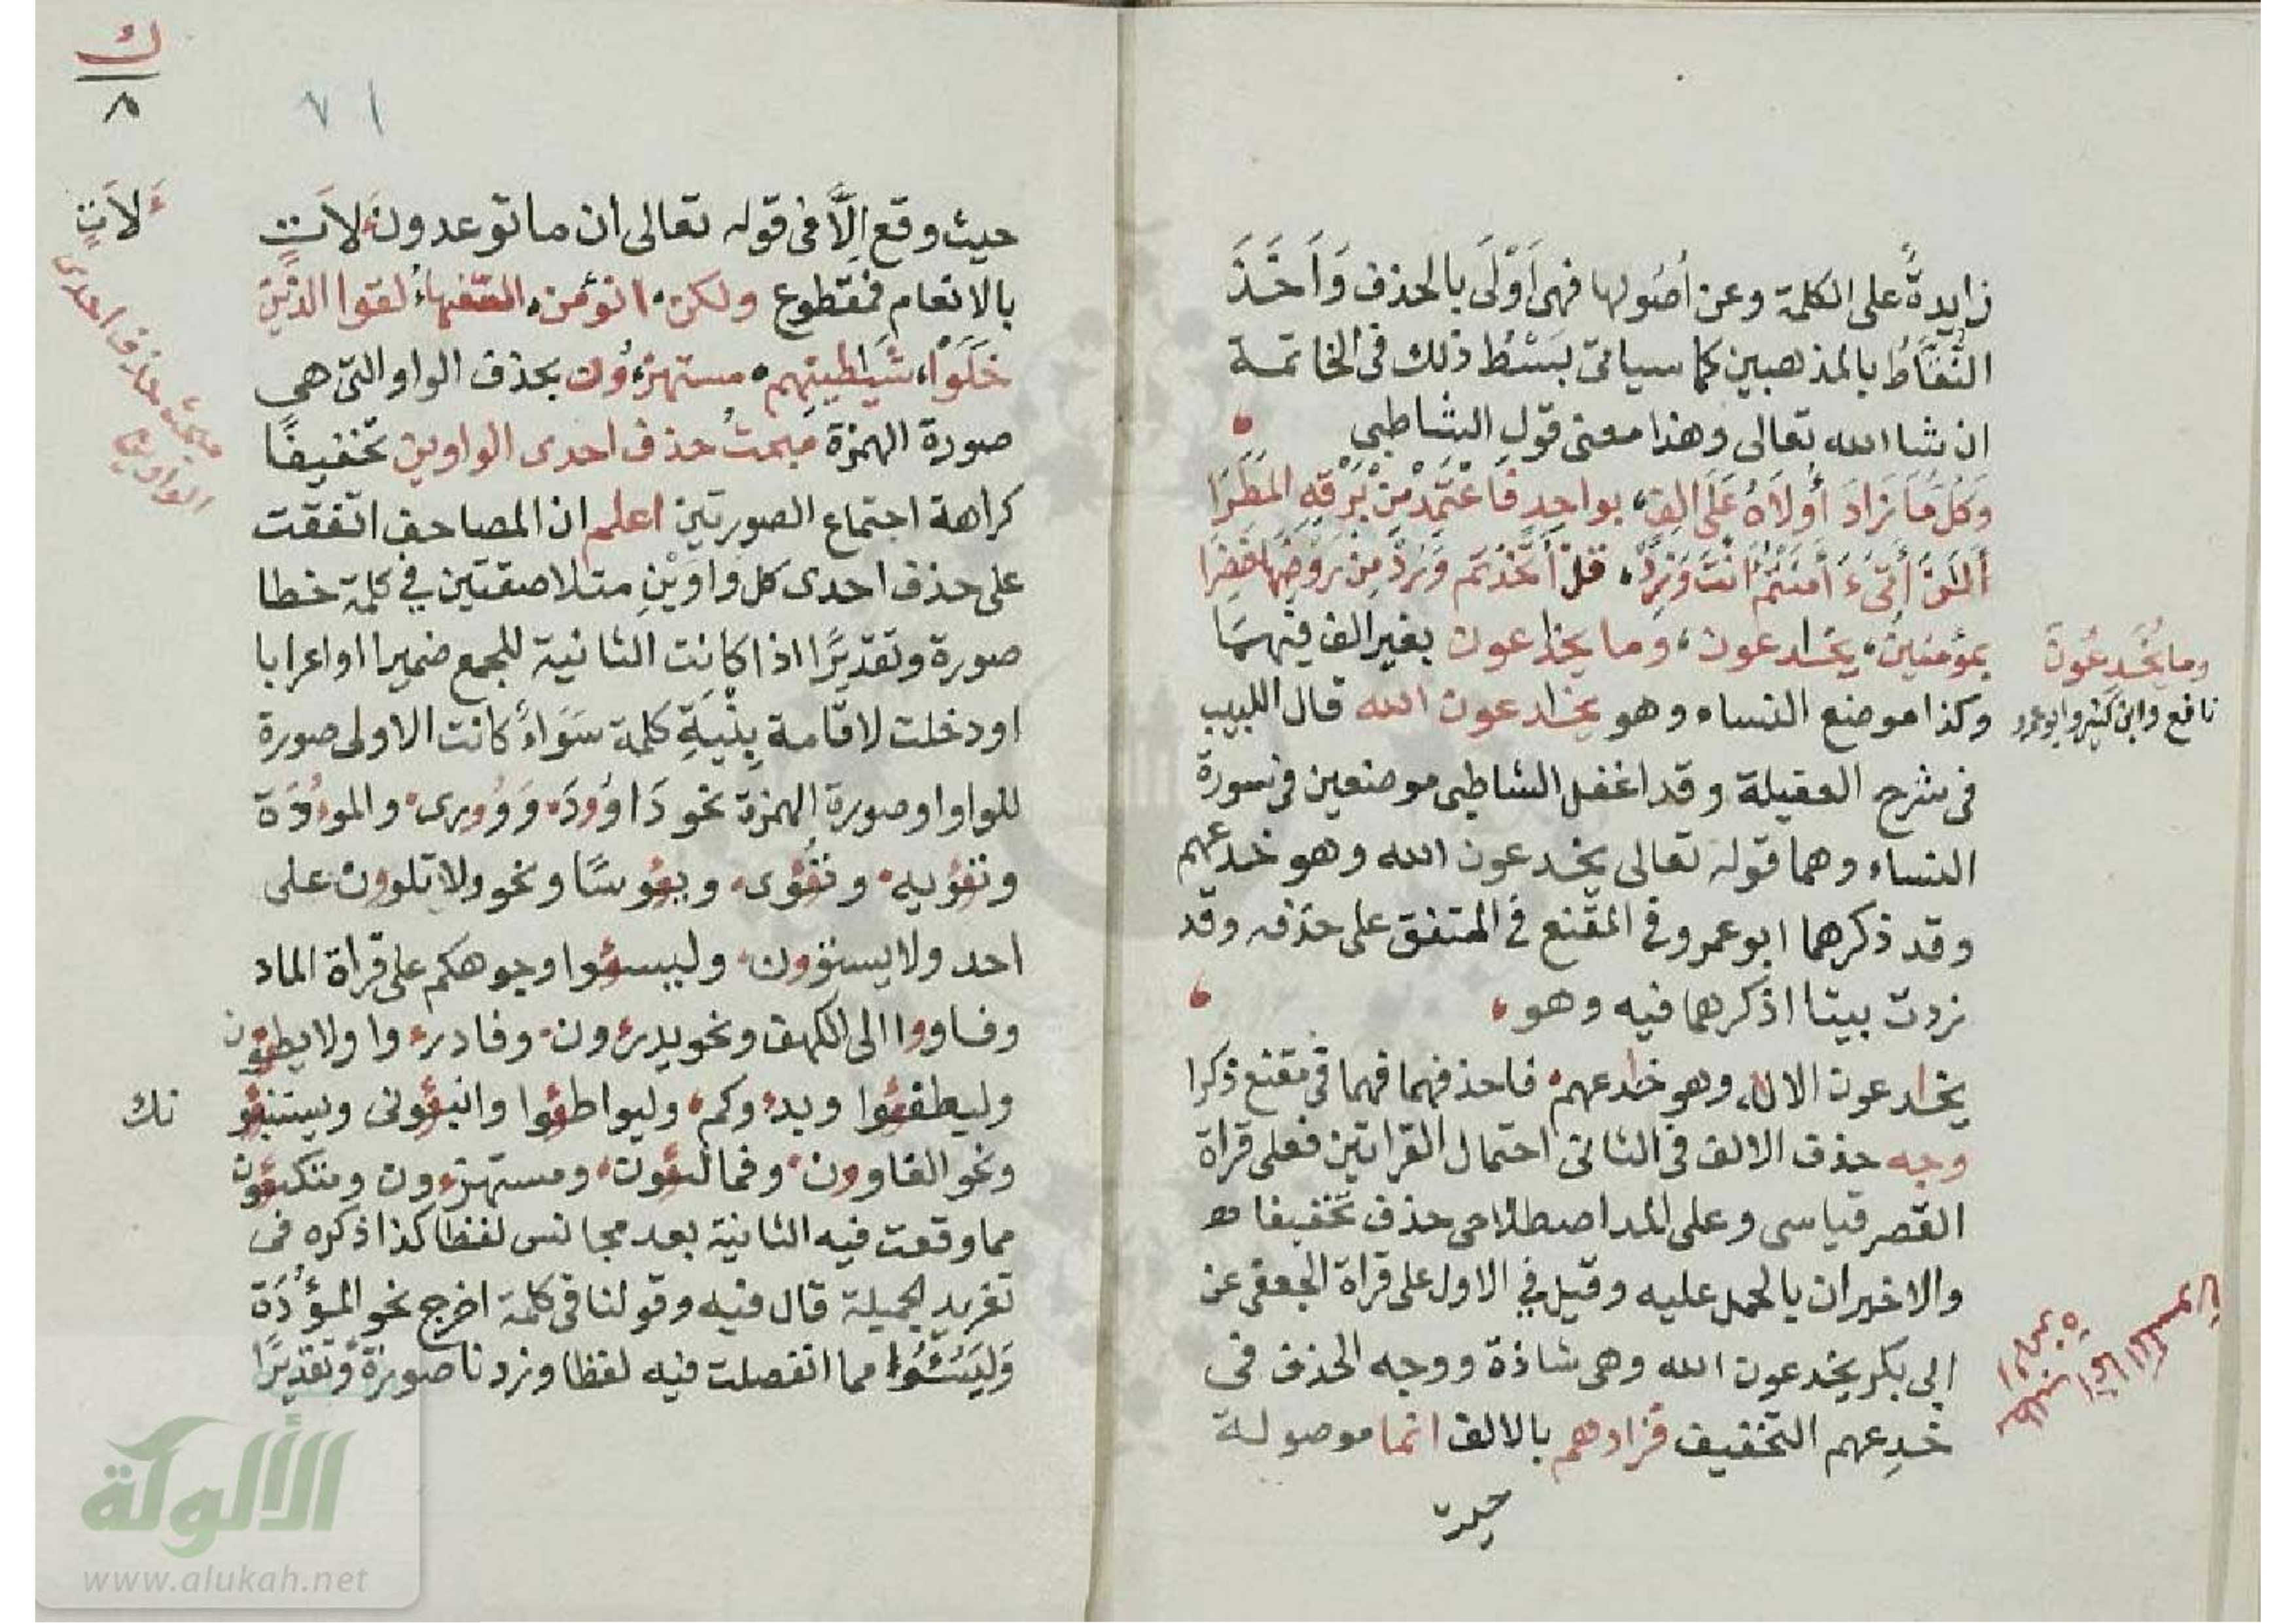 زايدةً على الكلمة وعن أصولها فهى أَوْلَى بالحذف وَأَخَذَ
النُّقَّاطُ بالمذهبين كما سياتى بسْطُ ذلك فى الخاتمة
ان شا الله تعالى وهذا معنى قولِ الشاطبى
وَكُلُّ مَا زَادَ أُولَاهُ عَلَى الِفٍ، بواحِدٍ فَاعْتَمِدْ مِنْ بَرْقِهِ المَطَرَا
أَلَنَ أَتَىءَ أَمِنتُمْ أَنْتَ وَزِدْ، قل أَتَّخَذْتُم وَزِدْ مِنْ رَوْضِهَا خَضِرَا
بمؤمنين، يخدعون، وما يخدعون بغير الف فيهمَا
وكذا موضع النساء وهو يخدعون الله قال اللبيب
فى شرح العقيلة وقد اغفل الشاطبى موضعين فى سورة
النساء وهما قوله تعالى يخدعون الله وهو خدعهم
وقد ذكرهما ابو عمرو فى المقنع فى المتفق على حذفه وقد
زدت بيتا اذكرهما فيه وهو،
يخدعون الاله، وهو خدعهم، فاحذفهما فهما فى مقنع ذكرا
وجه حذف الالف فى الثانى احتمال القراتين فعلى قراة
القصر قياسى وعلى المد اصطلاحى حذف تخفيفا
والاخيران بالحمل عليه وقيل فى الاول على قراة الجعفى عن
ابى بكر يخدعون الله وهى شاذة ووجه الحذف فى
خدِعهم التخفيف فزادهم بالالف انما موصولة
حيث
وما يَخْدعُونَ
نافع وابن كثير وابو عمرو
٧١
ك
٨
حيث وقع إلَّا فى قوله تعالى ان ما توعدون لَاَتٍ
بالانعام فمقطوع ولكن، انؤمن، السفهاءُ لقوا الذين
خَلَوْا، شَيَطِينِهِم، مستهزءُون بحذف الواو التى هى
صورة الهمزة مبحثُ حذف احدى الواوين تخفيفًا
كراهة اجتماع الصورتين اعلم ان المصاحف اتفقت
على حذف احدى كل وَاوَيْنِ متلاصقتين فى كلمة خطا
صورة وتقديرًا اذا كانت الثانية للجمع ضميرا او اعرابا
او دخلت لاقامة بِنْيَةِ كلمة سَوَاءً كانت الاولى صورة
للواو او صورة الهمزة نحو دَاوُودَ، وَوُورى، والموءُودَة
وتؤيه، وتؤوى، ويؤسًا ونحو ولا تلوون على
احد ولا يستوون، وليسؤا وجوهكم على قراة الماد
وفاووا الى الكهف ونحو يدرءون، وفادرءوا ولا يطؤن
وليطفؤا وبدءوكم، وليواطؤا وانبؤنى ويستنبؤنك
ونحو الغاوون، وفمالـؤن، ومستهزءون ومتكؤن
مما وقعت فيه الثانية بعد مجانس لفظا كذا ذكره فى
تغريد الجميلة قال فيه وقولنا فى كلمة اخرج نحو الموْؤُدَة
وَلِيَسُـؤُا مما انفصلت فيه لفظا وزدنا صورةً وتقديرًا
لَاَتٍ
مبحث حذف احدى
الواوين
الألوكة
www.alukah.net